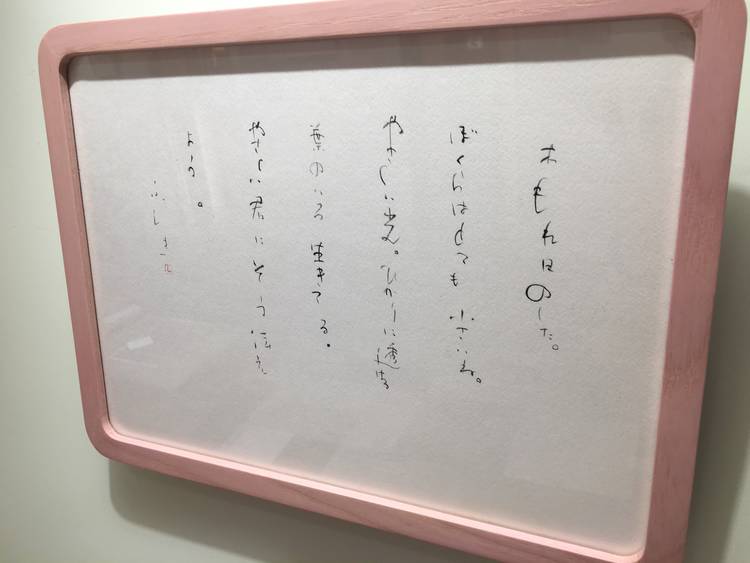 木もれ日のした。
ぼくらはとても小さいね。
やさしい光。ひかりに透ける
葉のいろ 生きてる。
やさしい君にそう伝え
よう。